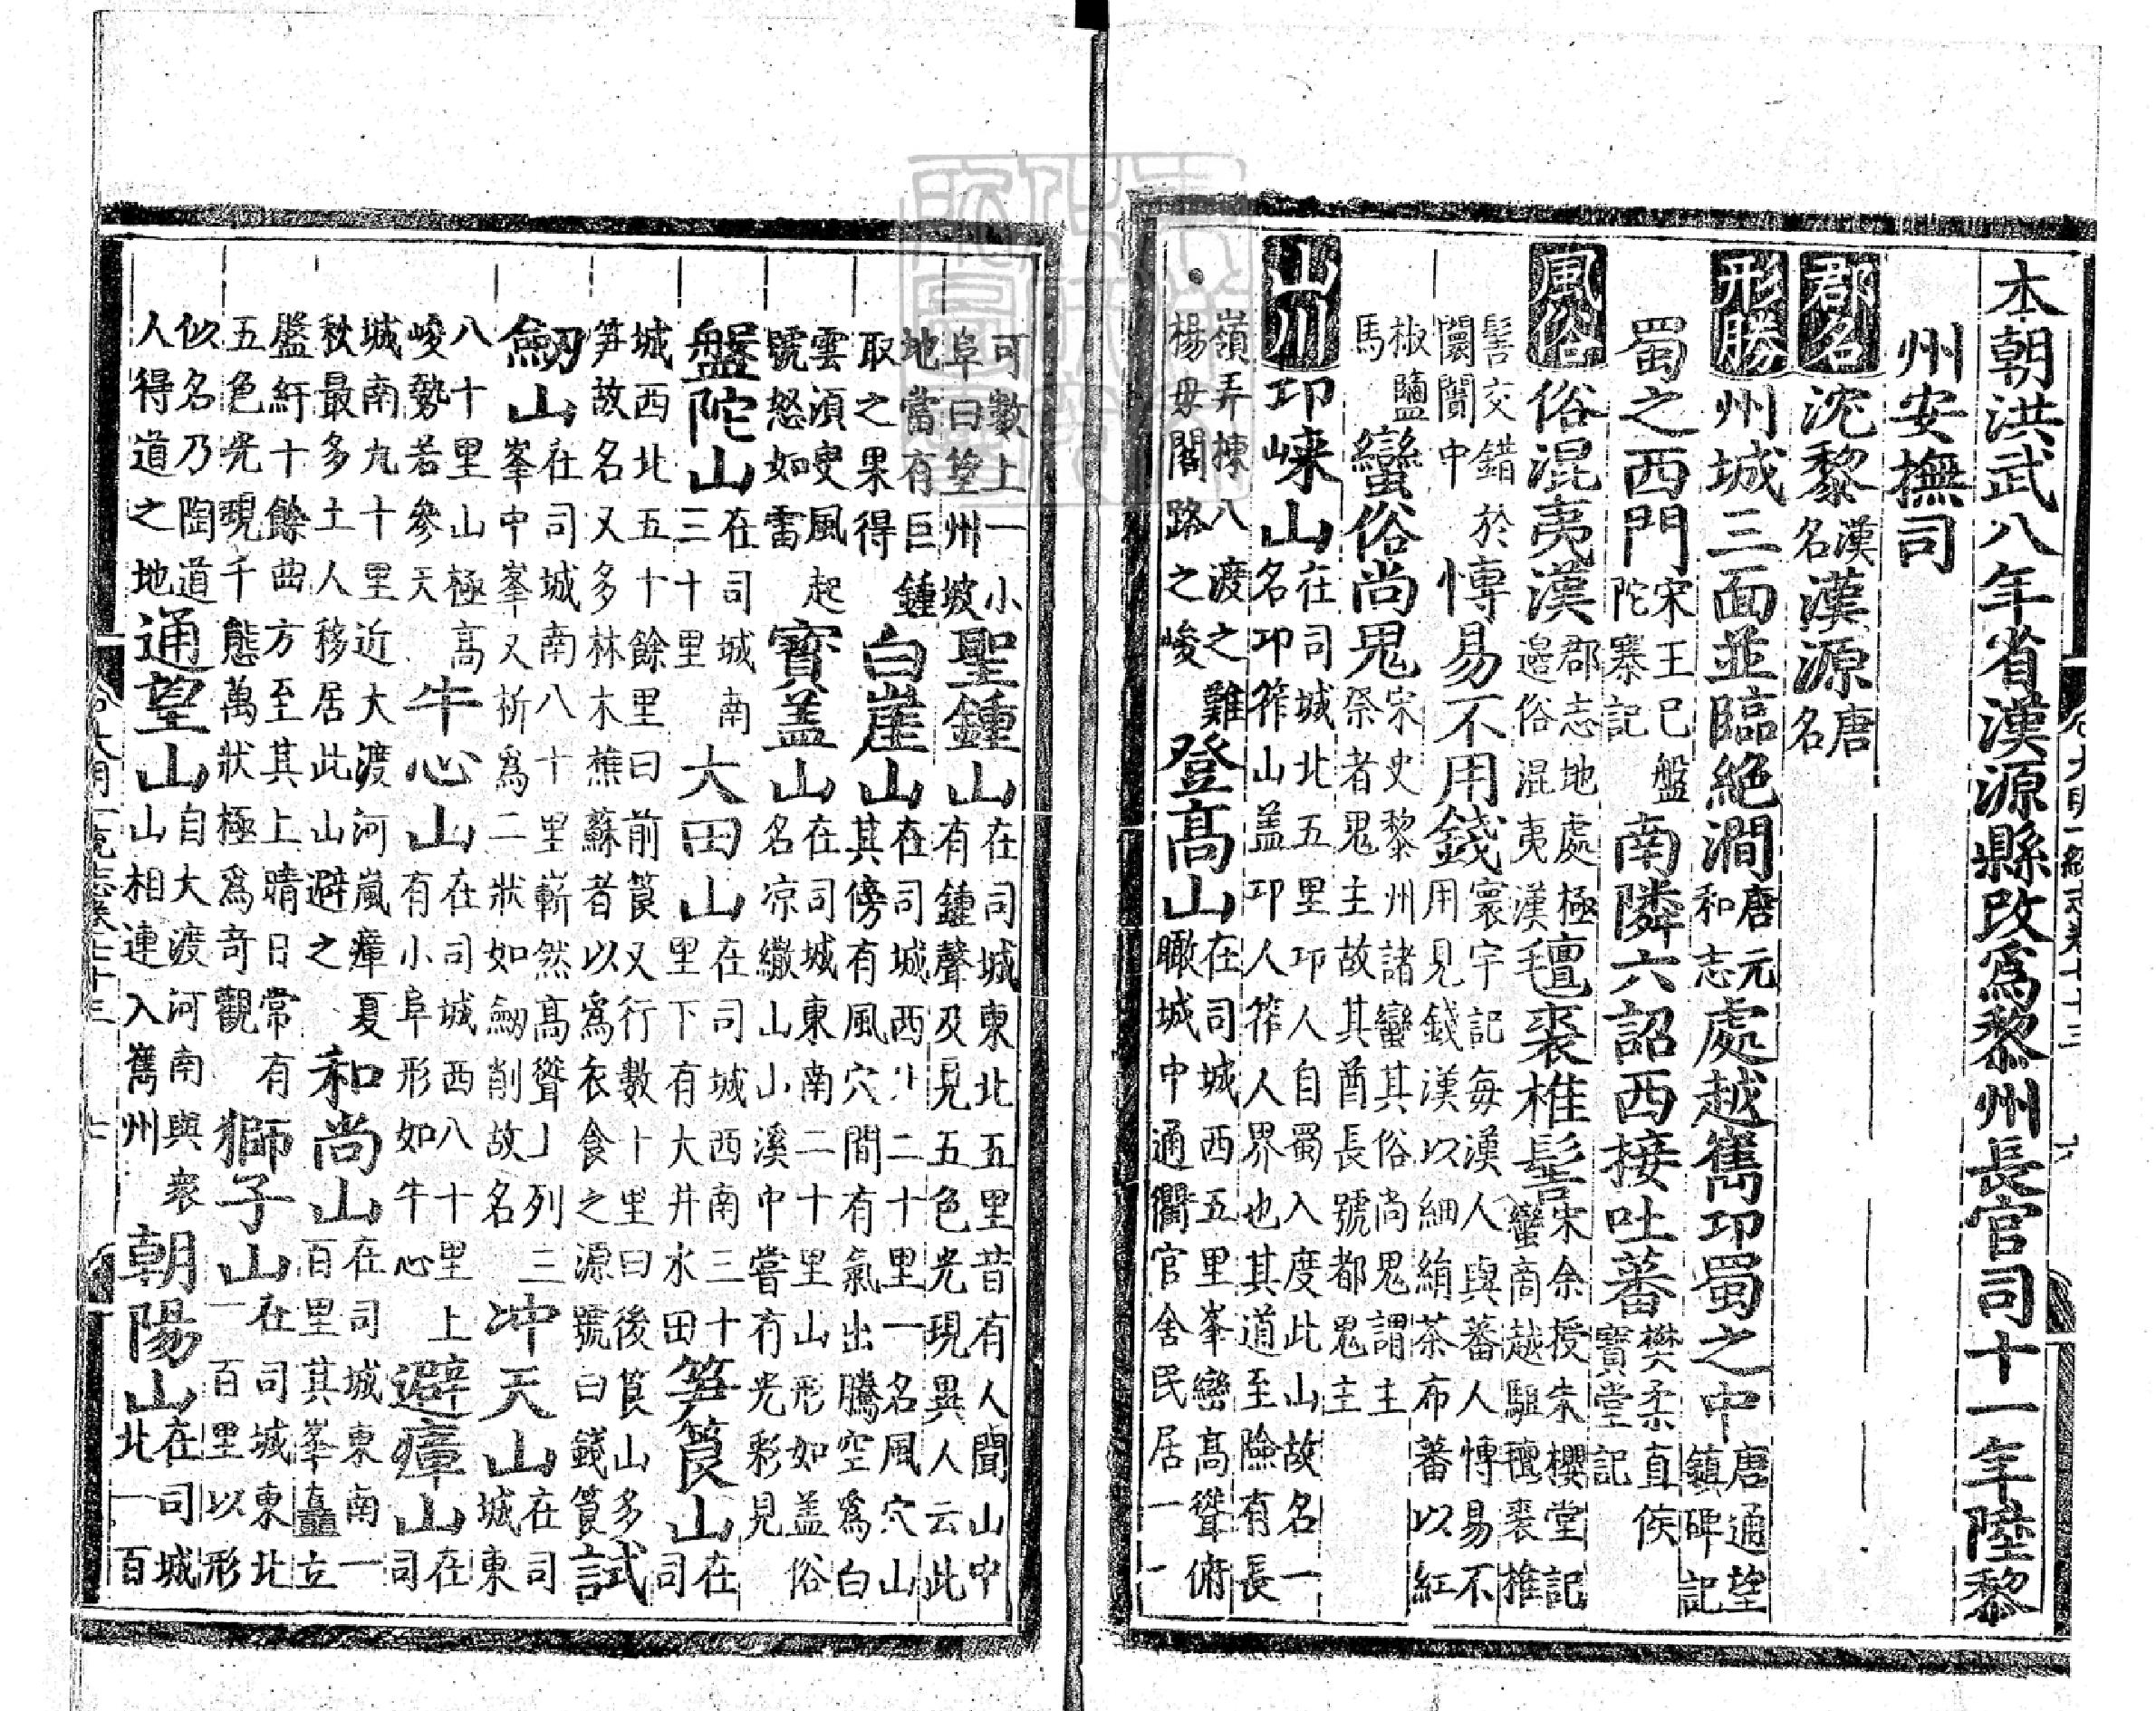 本朝洪武八年省漢源縣改爲黎州長官司十一年陞黎
州安撫司
郡名沈黎漢名漢源唐名
形勝州城三面並臨絶澗唐元和志處越嶲卭蜀之中唐通望鎮碑記
蜀之西門宋王巳盤陀寨記南隣六詔西接吐蕃樊柔直俟寶堂記
風俗俗混夷漢郡志地處極邊俗混夷漢氊裘椎髻宋余授朱櫻堂記蠻商越驅氊裘椎
髻交錯於闤闠中慱易不用錢寰宇記每漢人與蕃人慱易不用見錢漢以細絹茶布蕃以紅
椒鹽馬蠻俗尚鬼宋史黎州諸蠻其俗尚鬼謂主祭者鬼主故其酋長號都鬼主
山川卭崍山在司城北五里卭人自蜀入度此山故名一名卭筰山盖卭人筰人界也其道至險有長
嶺弄棟八渡之難楊母閣路之峻登高山在司城西五里峯巒高聳俯瞰城中通衢官舍民居一一
可數上一小阜曰箜州坡聖鍾山在司城東北五里昔有人聞山中有鍾聲及見五色光現異人云此
地當有巨鍾取之果得白崖山在司城西二十里一名風穴山其傍有風穴間有氣出騰空爲白
雲須臾風起號怒如雷寳盖山在司城東南二十里山形如盖俗名凉繖山山溪中嘗有光彩見
盤陀山在司城南三十里大田山在司城西南三十里下有大井水田笋筤山在司
城西北五十餘里曰前筤又行數十里曰後筤山多笋故名又多林木樵蘇者以爲衣食之源號曰錢筤試
劒山在司城南八十里嶄然高聳列三峯中峯又析爲二狀如劒削故名冲天山在司城東
八十里山極高峻勢若參天牛心山在司城西八十里上有小阜形如牛心避瘴山在司
城南九十里近大渡河嵐瘴夏秋最多土人移居此山避之和尚山在司城東南一百里其峯矗立
盤紆十餘曲方至其上晴日常有五色光覩千態萬狀極爲竒觀獅子山在司城東北一百里以形
似名乃陶道人得道之地通望山自大渡河南與衆山相連入嶲州朝陽山在司城北一百